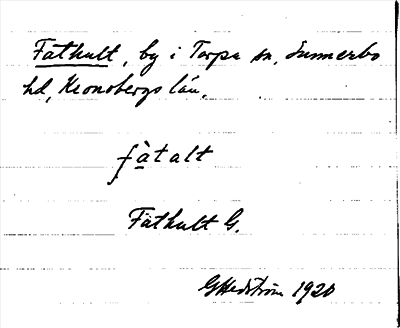 Fathult, by i Torpa sn, Sunnerbo
hd, Kronobergs län.
fàtalt
Fathult G.
G Hedström 1920